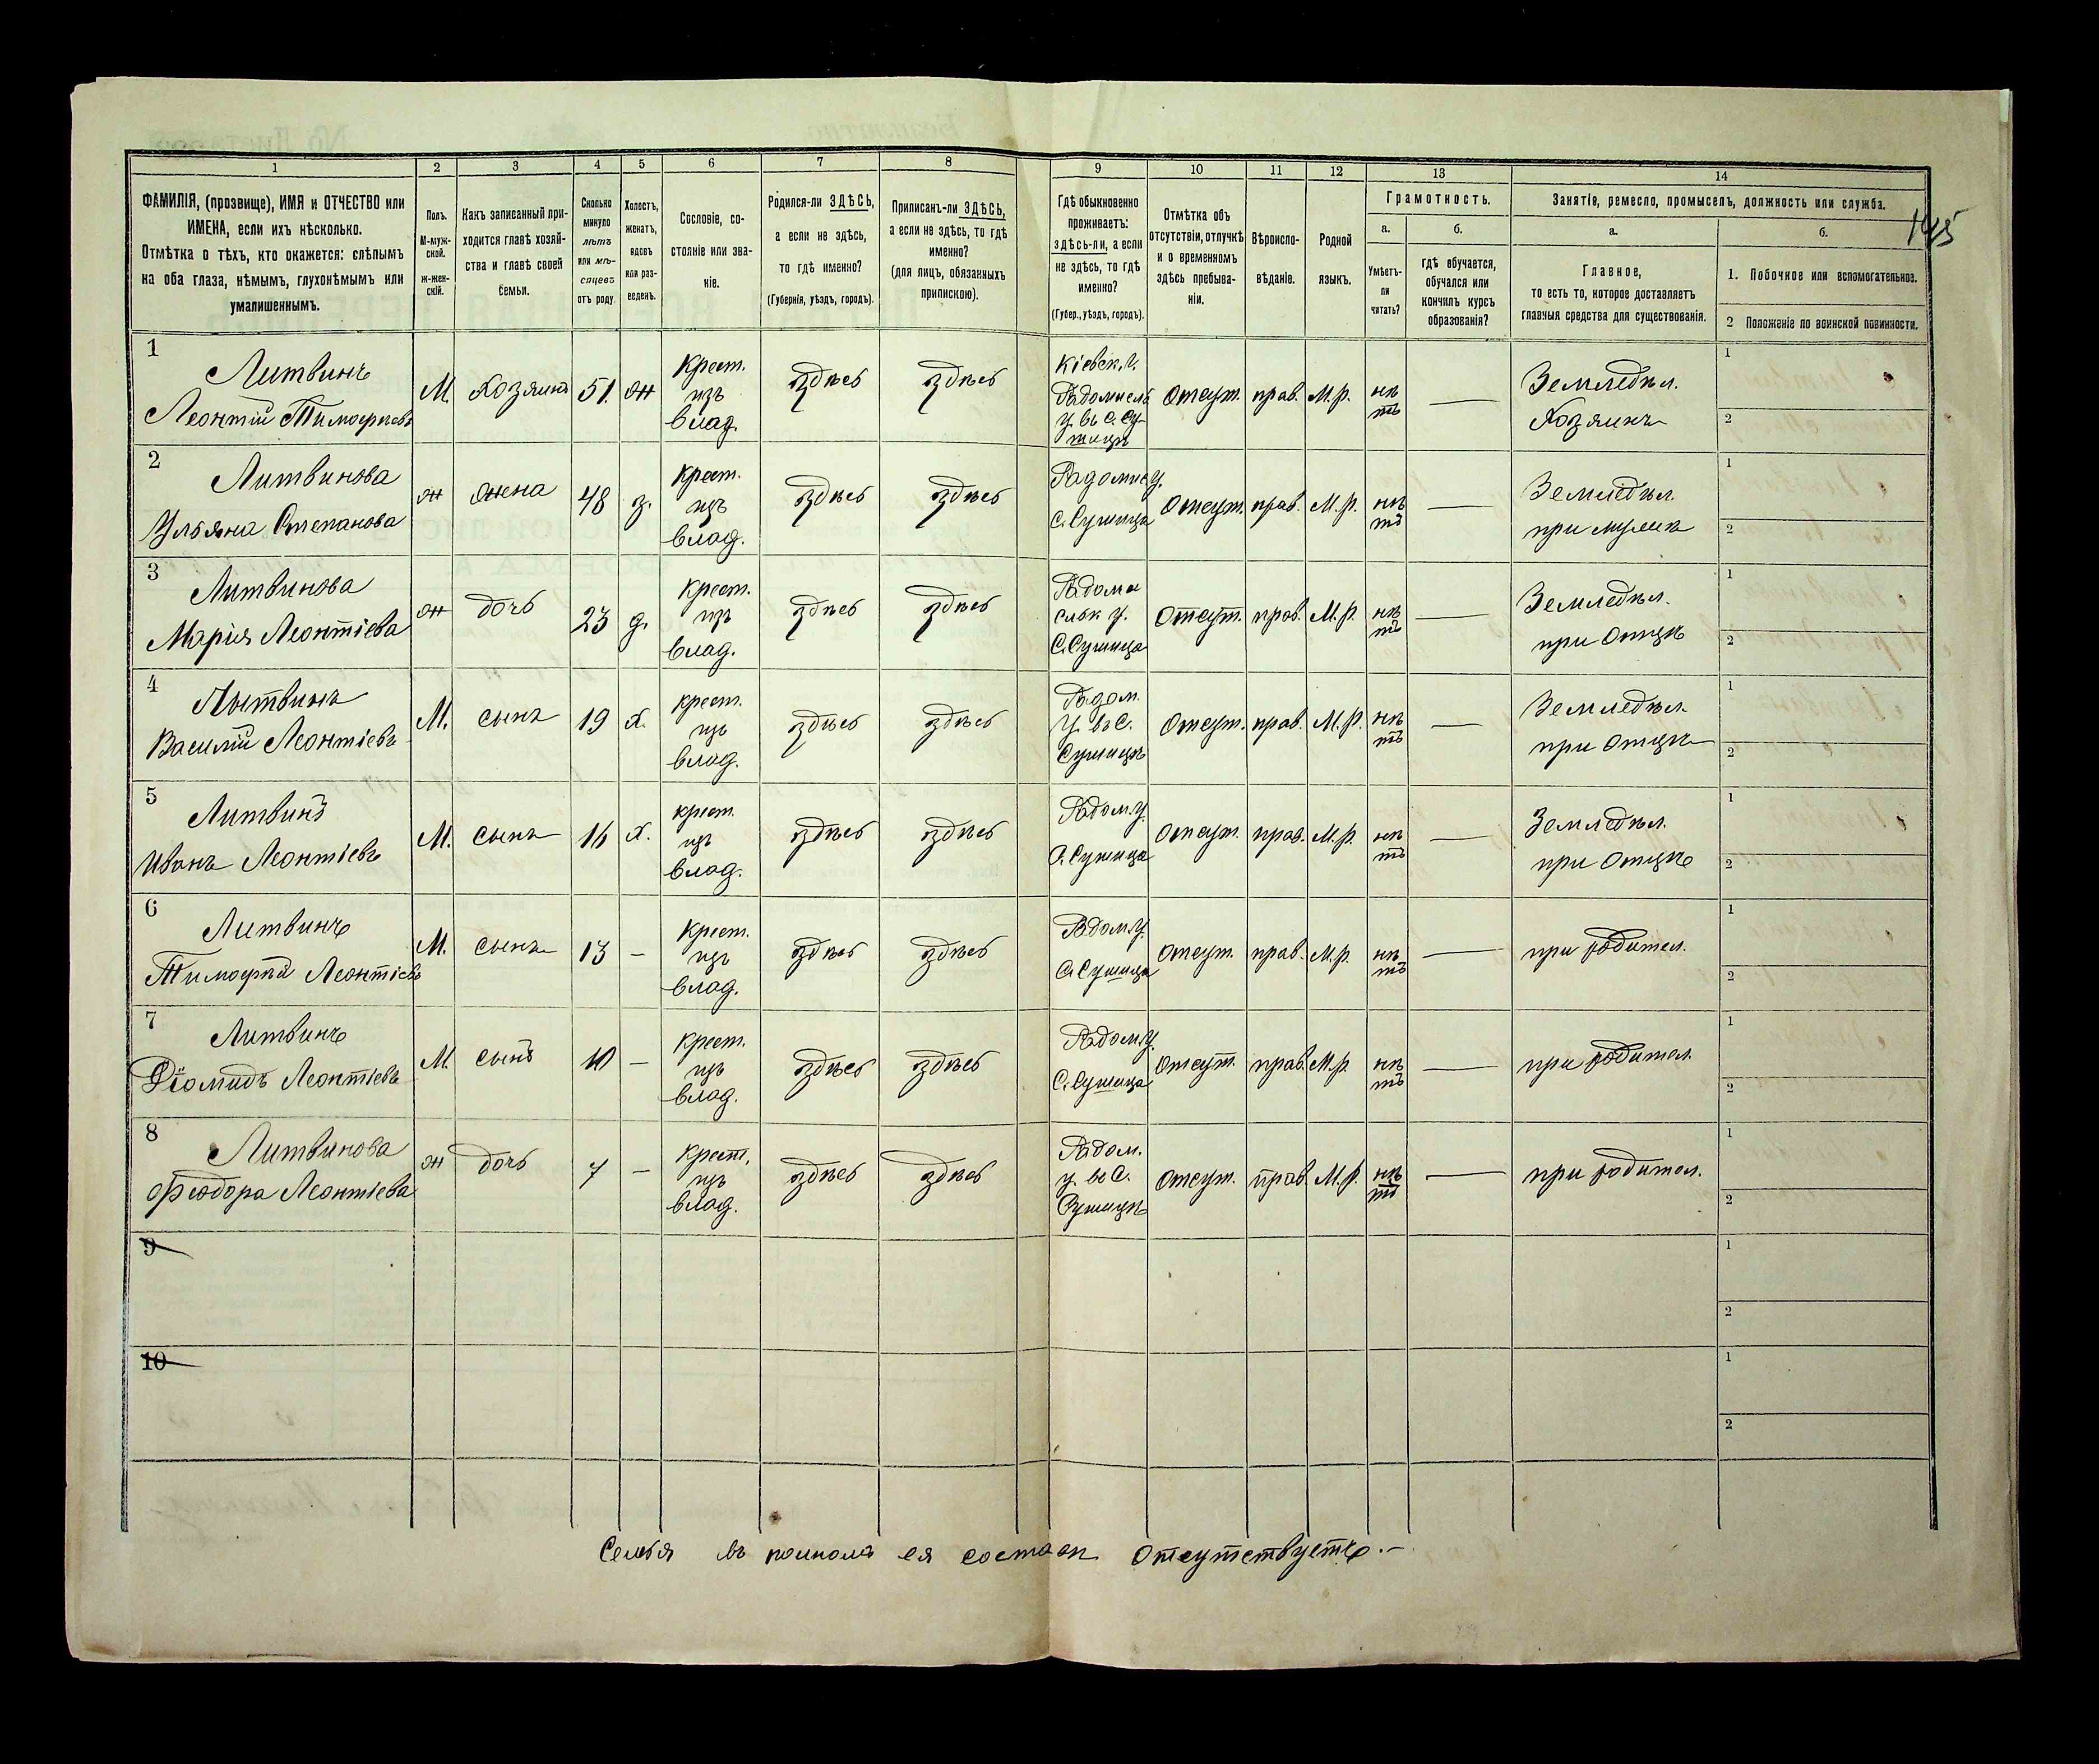 1 2 3 4 5 6 7 8 9 10 11 12 13 14
ФАМИЛІЯ, (прозвище), ИМЯ и ОТЧЕСТВО или
ИМЕНА, если ихъ нѣсколько.
Отмѣтка о тѣхъ, кто окажется: слѣпымъ
на оба глаза, нѣмымъ, глухонѣмымъ или
умалишеннымъ.
Полъ.
М-муж-
ской.
ж-жен-
скій.
Какъ записанный при-
ходится главѣ хозяй-
ства и главѣ своей
семьи.
Сколько
минуло
лѣтъ
или мѣ-
сяцевъ
отъ роду.
Холостъ,
женатъ,
вдовъ
или раз-
веденъ.
Сословіе, со-
стояніе или зва-
ніе.
Родился-ли ЗДѢСЬ,
а если не здѣсь,
то гдѣ именно?
(Губернія, уѣздъ, городъ).
Приписанъ-ли ЗДѢСЬ,
а если не здѣсь, то гдѣ
именно?
(для лицъ, обязанныхъ
припискою).
Гдѣ обыкновенно
проживаетъ:
здѣсь-ли, а если
не здѣсь, то гдѣ
именно?
(Губер., уѣздъ, городъ).
Отмѣтка объ
отсутствіи, отлучкѣ
и о временномъ
здѣсь пребыва-
ніи.
Вѣроиспо-
вѣданіе.
Родной
языкъ.
Грамотность.
а.
Умѣетъ-
ли
читать?
б.
гдѣ обучается,
обучался или
кончилъ курсъ
образованія?
Занятіе, ремесло, промыселъ, должность или служба.
а.
Главное,
то есть то, которое доставляетъ
главныя средства для существованія.
б.
1. Побочное или вспомогательное.
2 Положеніе по воинской повинности.
145
1
Литвинъ
Леонтій Тимофѣевъ
М.
Хозяинъ
51.
ж
Крест.
изъ
влад.
здѣсь
здѣсь
Кіевск. г.
Радомысль
у. въ с. Су-
шицѣ
Отсут.
прав.
М.р.
нѣ
тъ
—
Земледѣл.
Хозяинъ
1
2
2
Литвинова
Ульяна Степанова
ж
жена
48
з.
Крест.
изъ
влад.
здѣсь
здѣсь
Радомис у.
с. Сушица
Отсут.
прав.
М.р.
нѣ
тъ
—
Земледѣл.
при мужѣ
1
2
3
Литвинова
Марія Леонтіева
ж
дочь
23
д.
Крест.
изъ
влад.
здѣсь
здѣсь
Радомы
сльк у.
С. Сушица
Отсут.
прав.
М.р.
нѣ
тъ
—
Земледѣл.
при Отцѣ
1
2
4
Лытвинъ
Василій Леонтіевъ
М.
сынъ
19
х.
крест.
изъ
влад.
здѣсь
здѣсь
Радом.
у. въ с.
Сушицѣ
Отсут.
прав.
М.р.
нѣ
тъ
—
Земледѣл.
при отцѣ
1
2
5
Литвинъ
Иванъ Леонтіевъ
М.
сынъ
16
х.
крест.
изъ
влад.
здѣсь
здѣсь
Радом. у.
с. Сушица
Отсут.
прав.
М.р.
нѣ
тъ
—
Земледѣл.
при Отцѣ
1
2
6
Литвинъ
Тимофѣй Леонтіевъ
М.
сынъ
13
—
Крест.
изъ
влад.
здѣсь
здѣсь
Радом. у.
с. Сушица
Отсут.
прав.
М.р.
нѣ
тъ
—
при родител.
1
2
7
Литвинъ
Діомидъ Леонтіевъ
М.
сынъ
10
—
Крест.
изъ
влад.
здѣсь
здѣсь
Радом. у.
с. Сушица
Отсут.
прав.
М.р.
нѣ
тъ
—
при родител.
1
2
8
Литвинова
Феодора Леонтіева
ж
дочь
7
—
Крест.
изъ
влад.
здѣсь
здѣсь
Радом.
у. въ с.
Сушицѣ
Отсут.
прав.
М.р.
нѣ
тъ
—
при родител.
1
2
9
1
2
10
1
2
Семья въ полномъ ея составѣ Отсутствуетъ.–